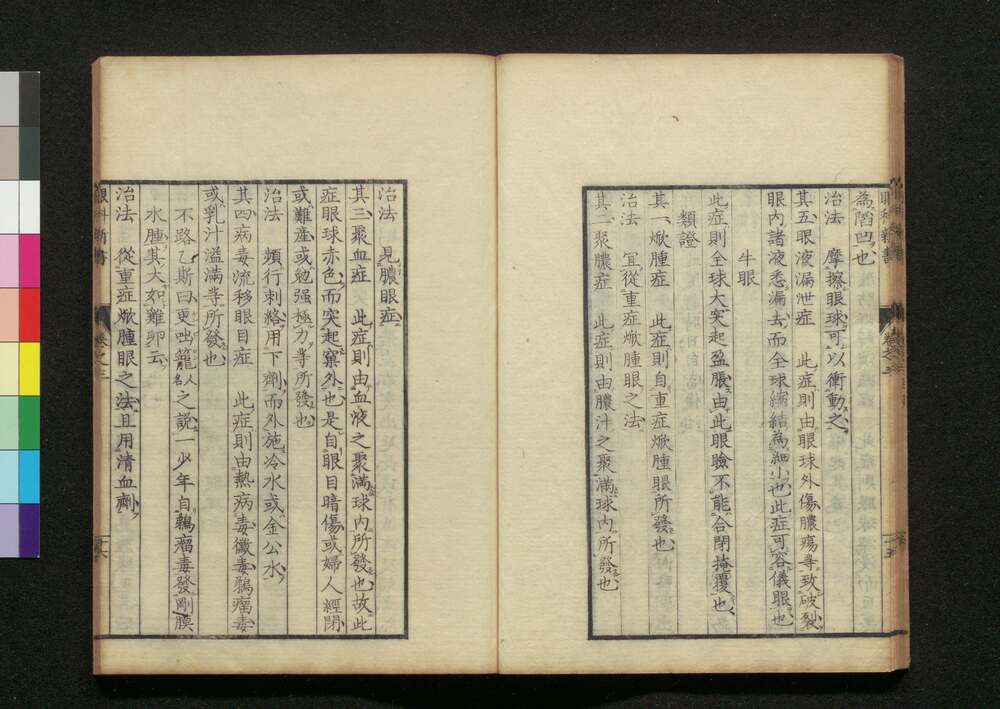 為陷凹也
治法　摩擦眼球可以衝動之
其五眼液漏泄症　此症則由眼球外傷膿瘍等致破裂
眼內諸液悉漏去而全球縮結為細小也此症可容儀眼也
牛眼
此症則全球大突起盈脹由此眼瞼不能合閉掩覆也
類證
其一焮腫症　此症則自重症焮腫眼所發也
治法　宜從重症焮腫眼之法
其二聚膿症　此症則由膿汁之聚滿球內所發也
治法　見膿眼症
其三聚血症　此症則由血液之聚滿球內所發也故此
症眼球赤色而突起窠外也是自眼目暗傷或婦人經閉
或難產或勉强極力等所發也
治法　頻行刺絡用下劑而外施冷水或金公水
其四病毒流移眼目症　此症則由熱病毒黴毒鶏瘤毒
或乳汁溢滿等所發也
不路乙斯曰更咄籠人名之説一少年自鶏瘤毒發剛膜
水腫其大如雞卵云
治法　從重症焮腫眼之法且用清血劑
眼科新書
卷之三
十六